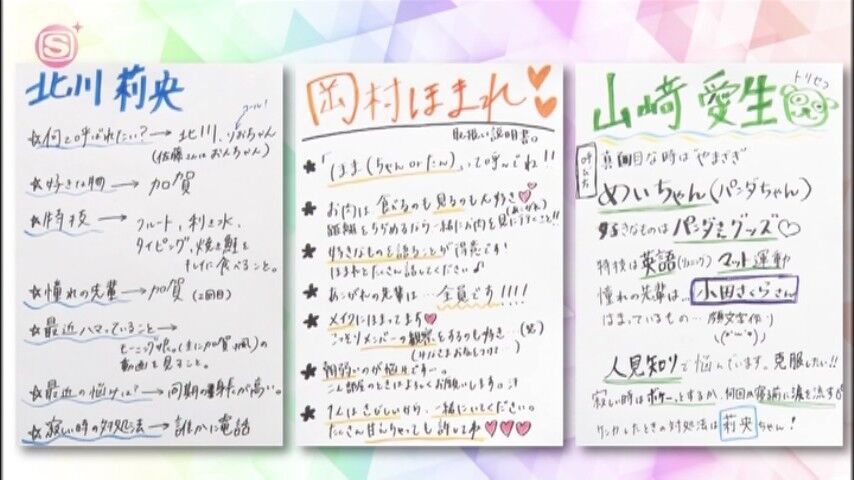 S
北川 莉央
コール!
☆何て呼ばれたい?→ 北川、りおちゃん
(佐藤さんは おんちゃん)
☆好きな物 → 加賀
☆特技 → フルート、利き水、
タイピング、焼き鮭を
キレイに食べること。
☆憧れの先輩 → 加賀 (2回目)
☆最近ハマっていること →
モーニング娘。(主に加賀楓)の
動画を見ること。
☆最近の悩みは? → 同期の身長が高い。
☆寂しい時の対処法 → 誰かに電話
岡村ほまれ
取扱い説明書。
★「ほま(ちゃんorたん)」って呼んでね!!
★お肉は 食べるのも 見るのも大好き
距離をちぢめるなら一緒にお肉を見に行くこと!!
★好きなものを語ることが得意です!
ほまれとたくさん話してください♪
★あこがれの先輩は…全員です!!!!
★メイクにはまってます
こっそりメンバーの観察をするのも好き…(笑)
★朝弱いのが悩みです…。
同じ部屋のときはよろしくお願いします。汗
★1人はさびしいから、一緒にいてください。
たくさん甘えちゃっても許してね
山﨑 愛生
トリセツ
呼び方
真面目な時は"やまざき"
めいちゃん(パンダちゃん)
好きなものは パンダさんグッズ♡
特技は 英語(リスニング) マット運動
憧れの先輩は… 小田さくらさん
はまっているもの… 顔文字作り
\(^ω^)/
人見知りで悩んでいます。克服したい!!
寂しい時はボケーっとするか、何回か寝る前に涙を流す
ケンカしたときの対処法は 莉央ちゃん!